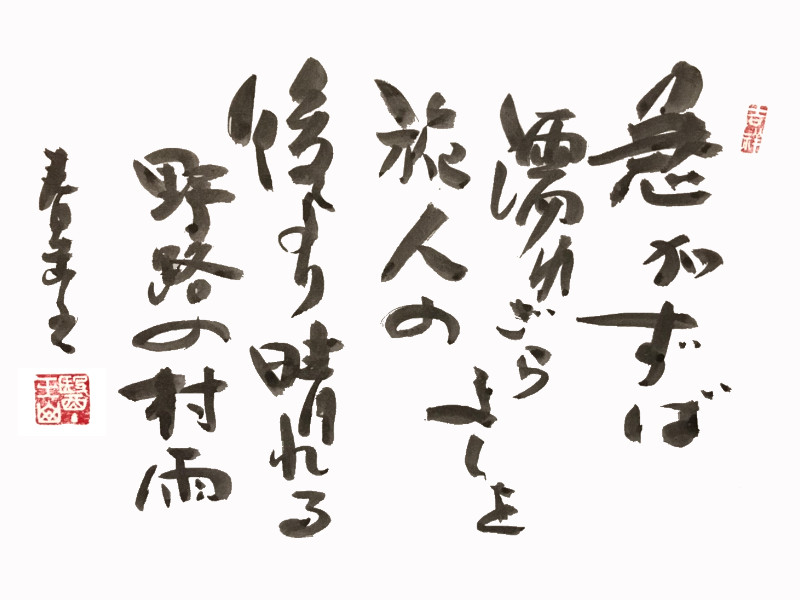 吉祥
急がずば
濡れざらましを
旅人の
後より晴れる
野路の村雨